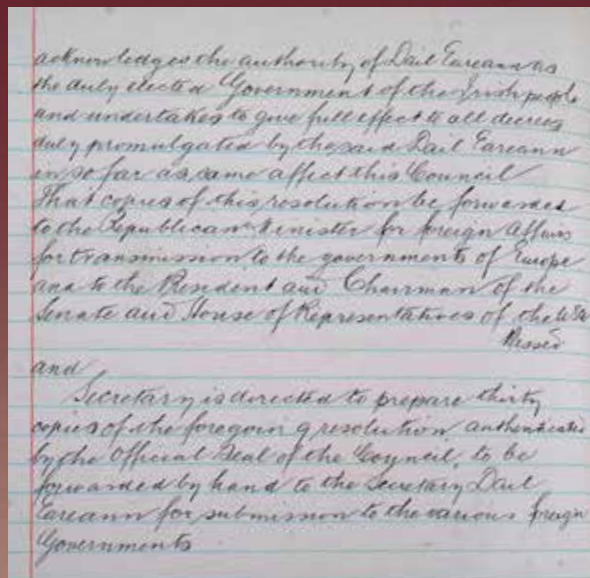 acknowledges the authority of Dail Eareann as
the duly elected Government of the Irish people
and undertakes to give full effect to all decrees
duly promulgated by the said Dail Eareann
in so far as same affect this Council
That copies of this resolution be forwarded
to the Republican Minister for foreign Affairs
for transmission to the governments of Europe
and to the President and Chairman of the
Senate and House of Representatives of the USA
Passed
and
Secretary is directed to prepare thirty
copies of the foregoing resolution authenticated
by the Official Seal of the Council, to be
forwarded by hand to the Secretary Dail
Eareann for submission to the various foreign
Governments